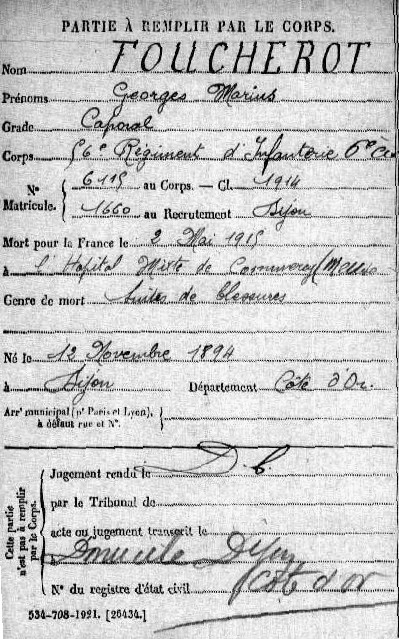 PARTIE À REMPLIR PAR LE CORPS.
Nom FOUCHEROT
Prénoms Georges Marius
Grade Caporal
Corps 56e Régiment d'Infanterie 6e Cie
N° Matricule. 6115 au Corps. — Cl. 1914
1660 au Recrutement Dijon
Mort pour la France le 2 Mai 1915
à l'Hopital Mixte de Commercy (Meuse
Genre de mort Suites de blessures
Né le 12 Novembre 1894
à Dijon Département Côte d'Or.
Arr^t municipal (p^r Paris et Lyon), à défaut rue et N°.
Cette partie n'est pas à remplir par le Corps.
Jugement rendu le
par le Tribunal de
acte ou jugement transcrit le
à Domicile Dijon
N° du registre d'état civil (Côte d'Or
534-708-1921. [26434.]